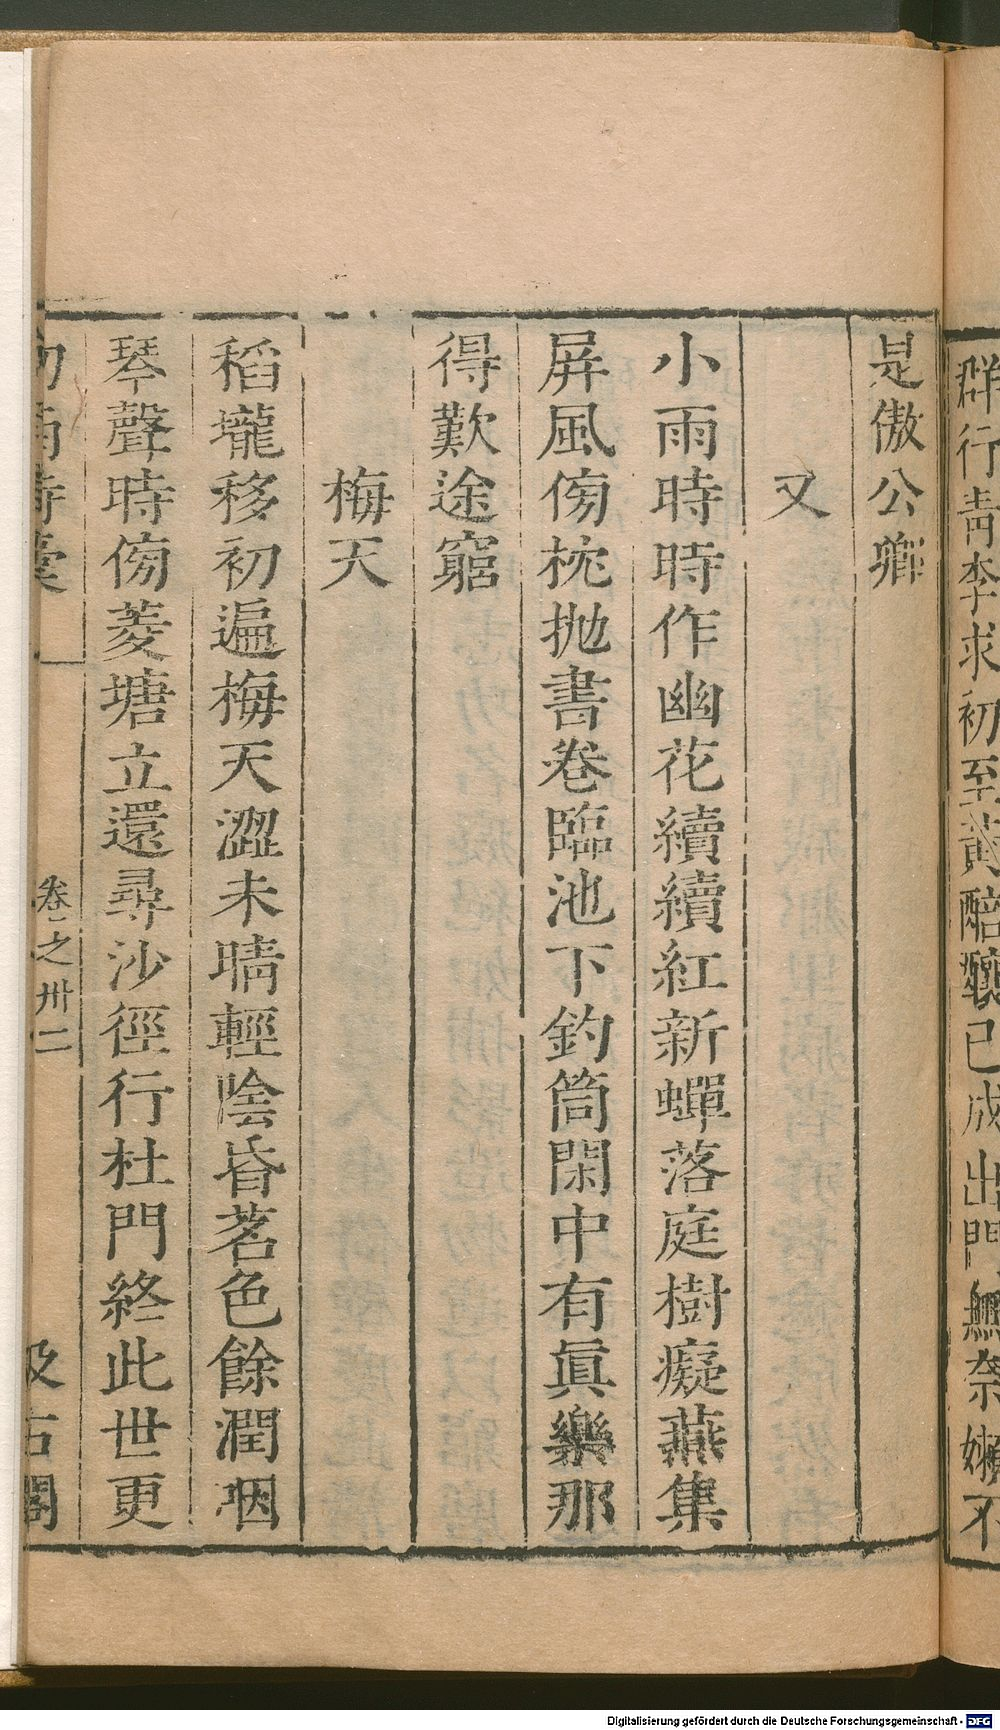 群行靑李求初至黃醅釀已成出門無奈嬾不
是傲公卿
又
小雨時時作幽花續續紅新蟬落庭樹癡燕集
屏風傍枕抛書卷臨池下釣筒閑中有眞樂那
得歎途窮
梅天
稻壠移初遍梅天澀未晴輕陰昏茗色餘潤咽
琴聲時傍菱塘立還尋沙徑行杜門終此世更
劍南詩稾
卷之卅二
汲古閣
Digitalisierung gefördert durch die Deutsche Forschungsgemeinschaft - DFG